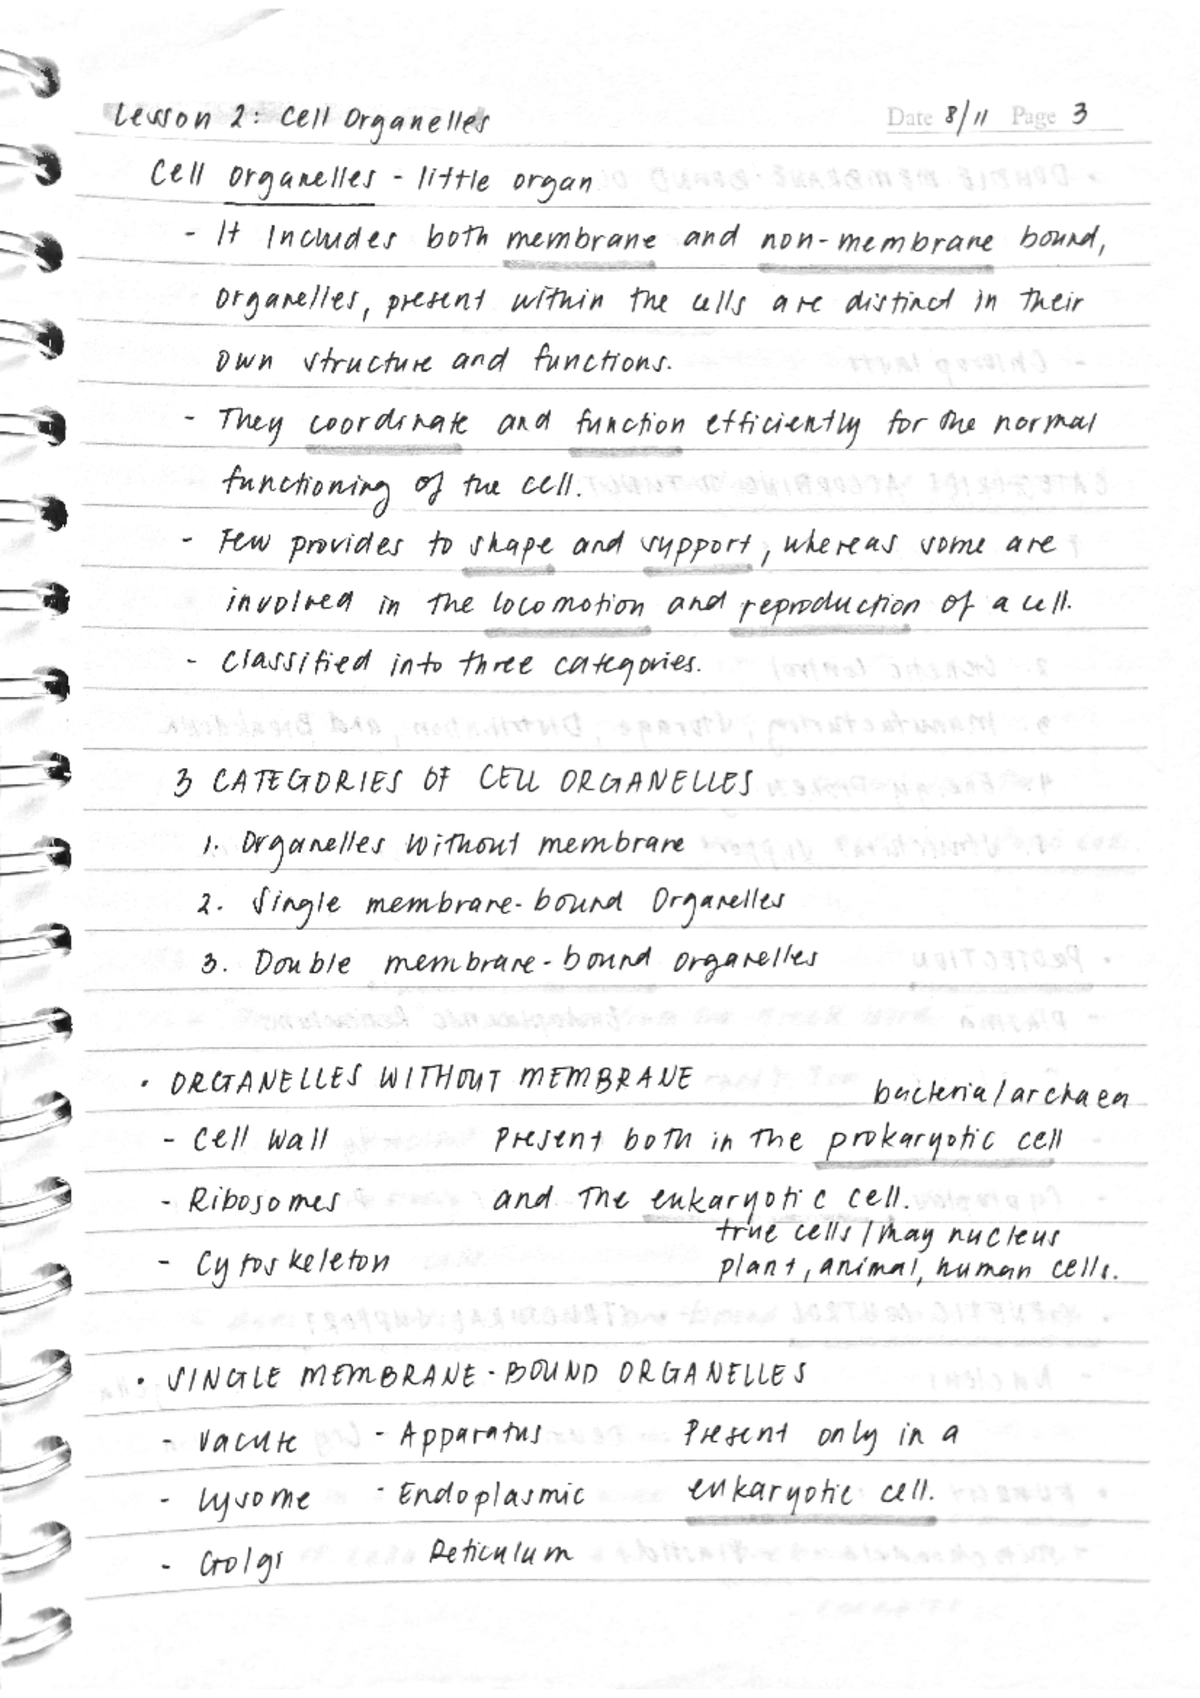 Lesson 2: Cell Organelles
Date 8/11 Page 3
Cell Organelles - little organ
- It Includes both membrane and non-membrane bound,
organelles, present within the cells are distinct in their
own structure and functions.
- They coordinate and function efficiently for the normal
functioning of the cell.
- Few provides to shape and support, whereas some are
involved in the locomotion and reproduction of a cell.
- Classified into three categories.
3 CATEGORIES OF CELL ORGANELLES
1. Organelles without membrane
2. Single membrane-bound Organelles
3. Double membrane-bound organelles
• ORGANELLES WITHOUT MEMBRANE
bacteria/archaea
- Cell Wall Present both in the prokaryotic cell
- Ribosomes and the eukaryotic cell.
true cells/may nucleus
- Cytoskeleton plant, animal, human cells.
• SINGLE MEMBRANE-BOUND ORGANELLES
- Vacute - Apparatus Present only in a
- Lysome - Endoplasmic eukaryotic cell.
- Golgi Reticulum